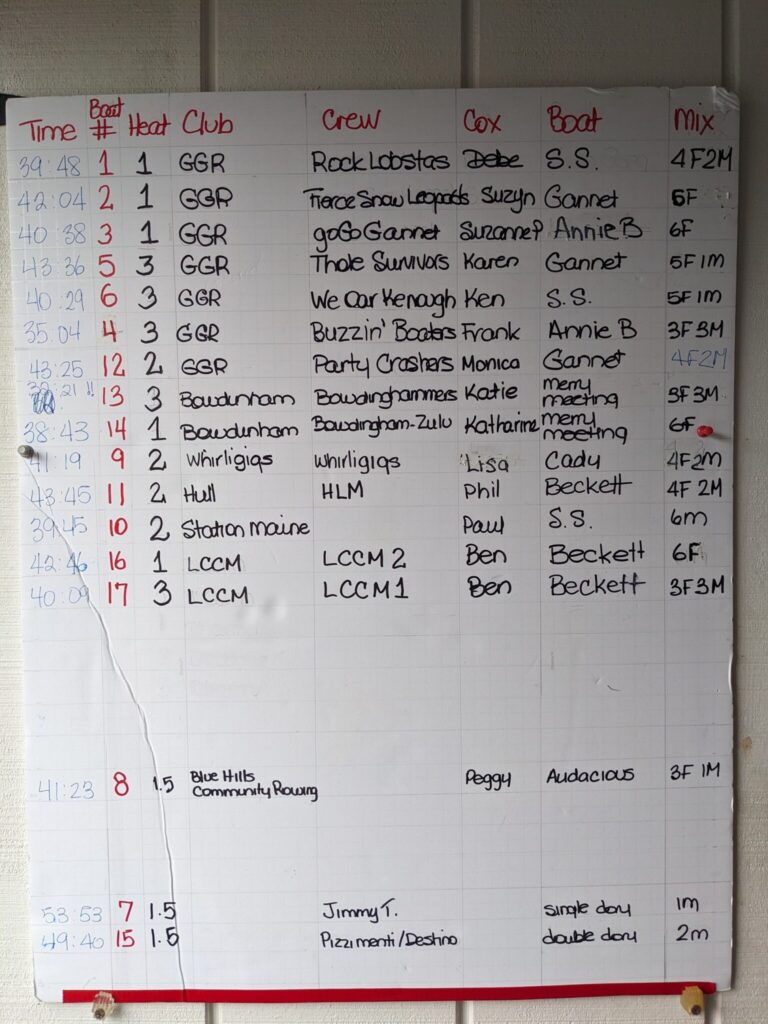 Time Boat # Heat Club Crew Cox Boat Mix
39:48 1 1 GGR Rock Lobstas Debe S.S. 4F2M
42:04 2 1 GGR Fierce Snow Leopards Suzyn Gannet 6F
40 38 3 1 GGR goGo Gannet SuzanneP Annie B 6F
43:36 5 3 GGR Thole Survivors Karen Gannet 5F 1m
40:29 6 3 GGR We Oar Kenough Ken S.S. 5F 1m
35.04 4 3 GGR Buzzin' Boaters Frank Annie B 3F3M
43:25 12 2 GGR Party Crashers Monica Gannet 4F2M
:21 !! 13 3 Bowdinham Bowdinghammers Katie merry meeting 3F3M
38:43 14 1 Bowdunham Bowdingham-Zulu Katharine merry meeting 6F
41:19 9 2 Whirligigs Whirligigs Lisa Cady 4F2m
43:45 11 2 Hull HLM Phil Beckett 4F 2M
39:45 10 2 Station maine Paul S.S. 6m
42:46 16 1 LCCM LCCM 2 Ben Beckett 6F
40:09 17 3 LCCM LCCM 1 Ben Beckett 3F3M
41:23 8 1.5 Blue Hills Community Rowing Peggy Audacious 3F 1M
53:53 7 1.5 Jimmy T. single dory 1m
49:40 15 1.5 Pizzimenti/Destino double dory 2m